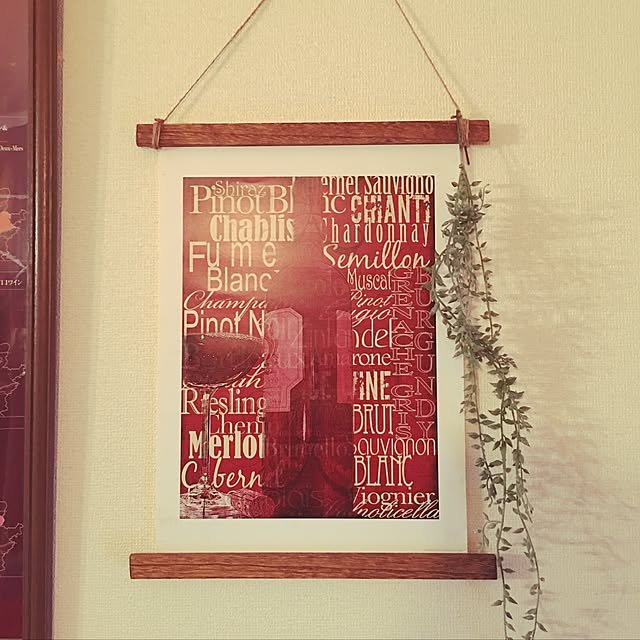 Shiraz
Pinot Bl
Chablis
Fume
Blanc
Champa
Pinot N
Riesling
Chen
Merlot
Cabern
rnet Sauvigno
ic CHIANTI
Chardonnay
Semillon
Muscat
Pinot
igio
ndel
rone
INE
BRUT
Sauvignon
BLANC
Viognier
noticella
GRENACHE GRIS
BURGUNDY
Deux-Mers
ワイン